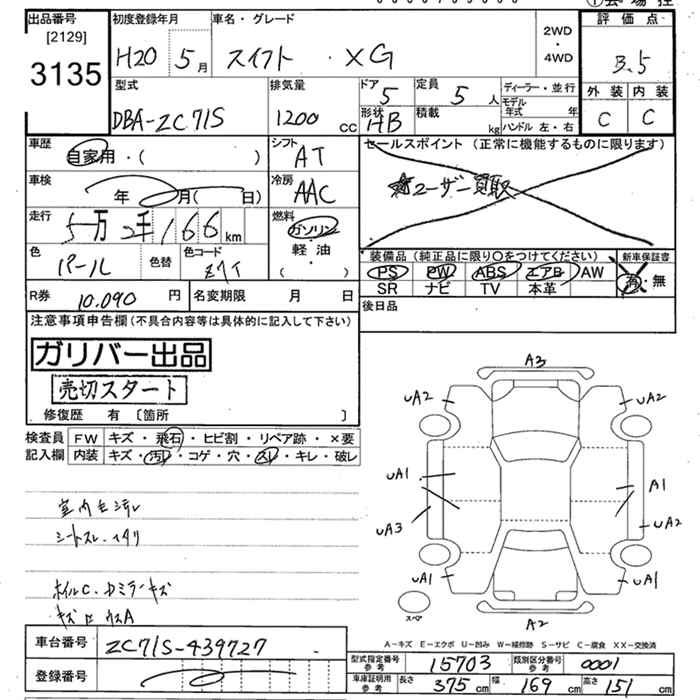 出品番号 初度登録年月 車名・グレード 評価点
[2129]
3135 H20 5月 スイフト ・ XG 2WD・4WD 3.5
外装 内装
C C
型式 排気量 ドア 定員 ディーラー・並行
DBA-ZC71S 1200cc 5 5人 モデル年式 年
形状 積載
HB kg ハンドル 左・右
車歴 シフト セールスポイント (正常に機能するものに限ります)
自家用・( ) AT
車検 冷房 ユーザー買取
年 月( 日) AAC
走行 燃料
5万2千166km ガソリン
軽油
・( )
色 色替 色コード 装備品 (純正品に限り○をつけてください) 新車保証書
パール PS PW ABS エアB AW 有・無
SR ナビ TV 本革
R券 10.090円 名変期限 月 日 後日品
注意事項申告欄(不具合内容等は具体的に記入して下さい)
ガリバー出品
売切スタート
修復歴 有 〔箇所 〕
検査員 FW キズ・飛石・ヒビ割・リペア跡・×要
記入欄 内装 キズ・汚レ・コゲ・穴・スレ・キレ・破レ
A3
uA2 uA2
uA1 A1
uA3 uA2
uA1 uA1
スペア A2
シートスレ
ホイルC.
A-キズ E-エクボ U-凹み W-補修跡 S-サビ C-腐食 XX-交換済
車台番号 ZC71S-439727
登録番号
型式指定番号 参考 15703 類別区分番号 参考 0001
車庫証明用 参考 長さ 375cm 幅 169cm 高さ 151cm